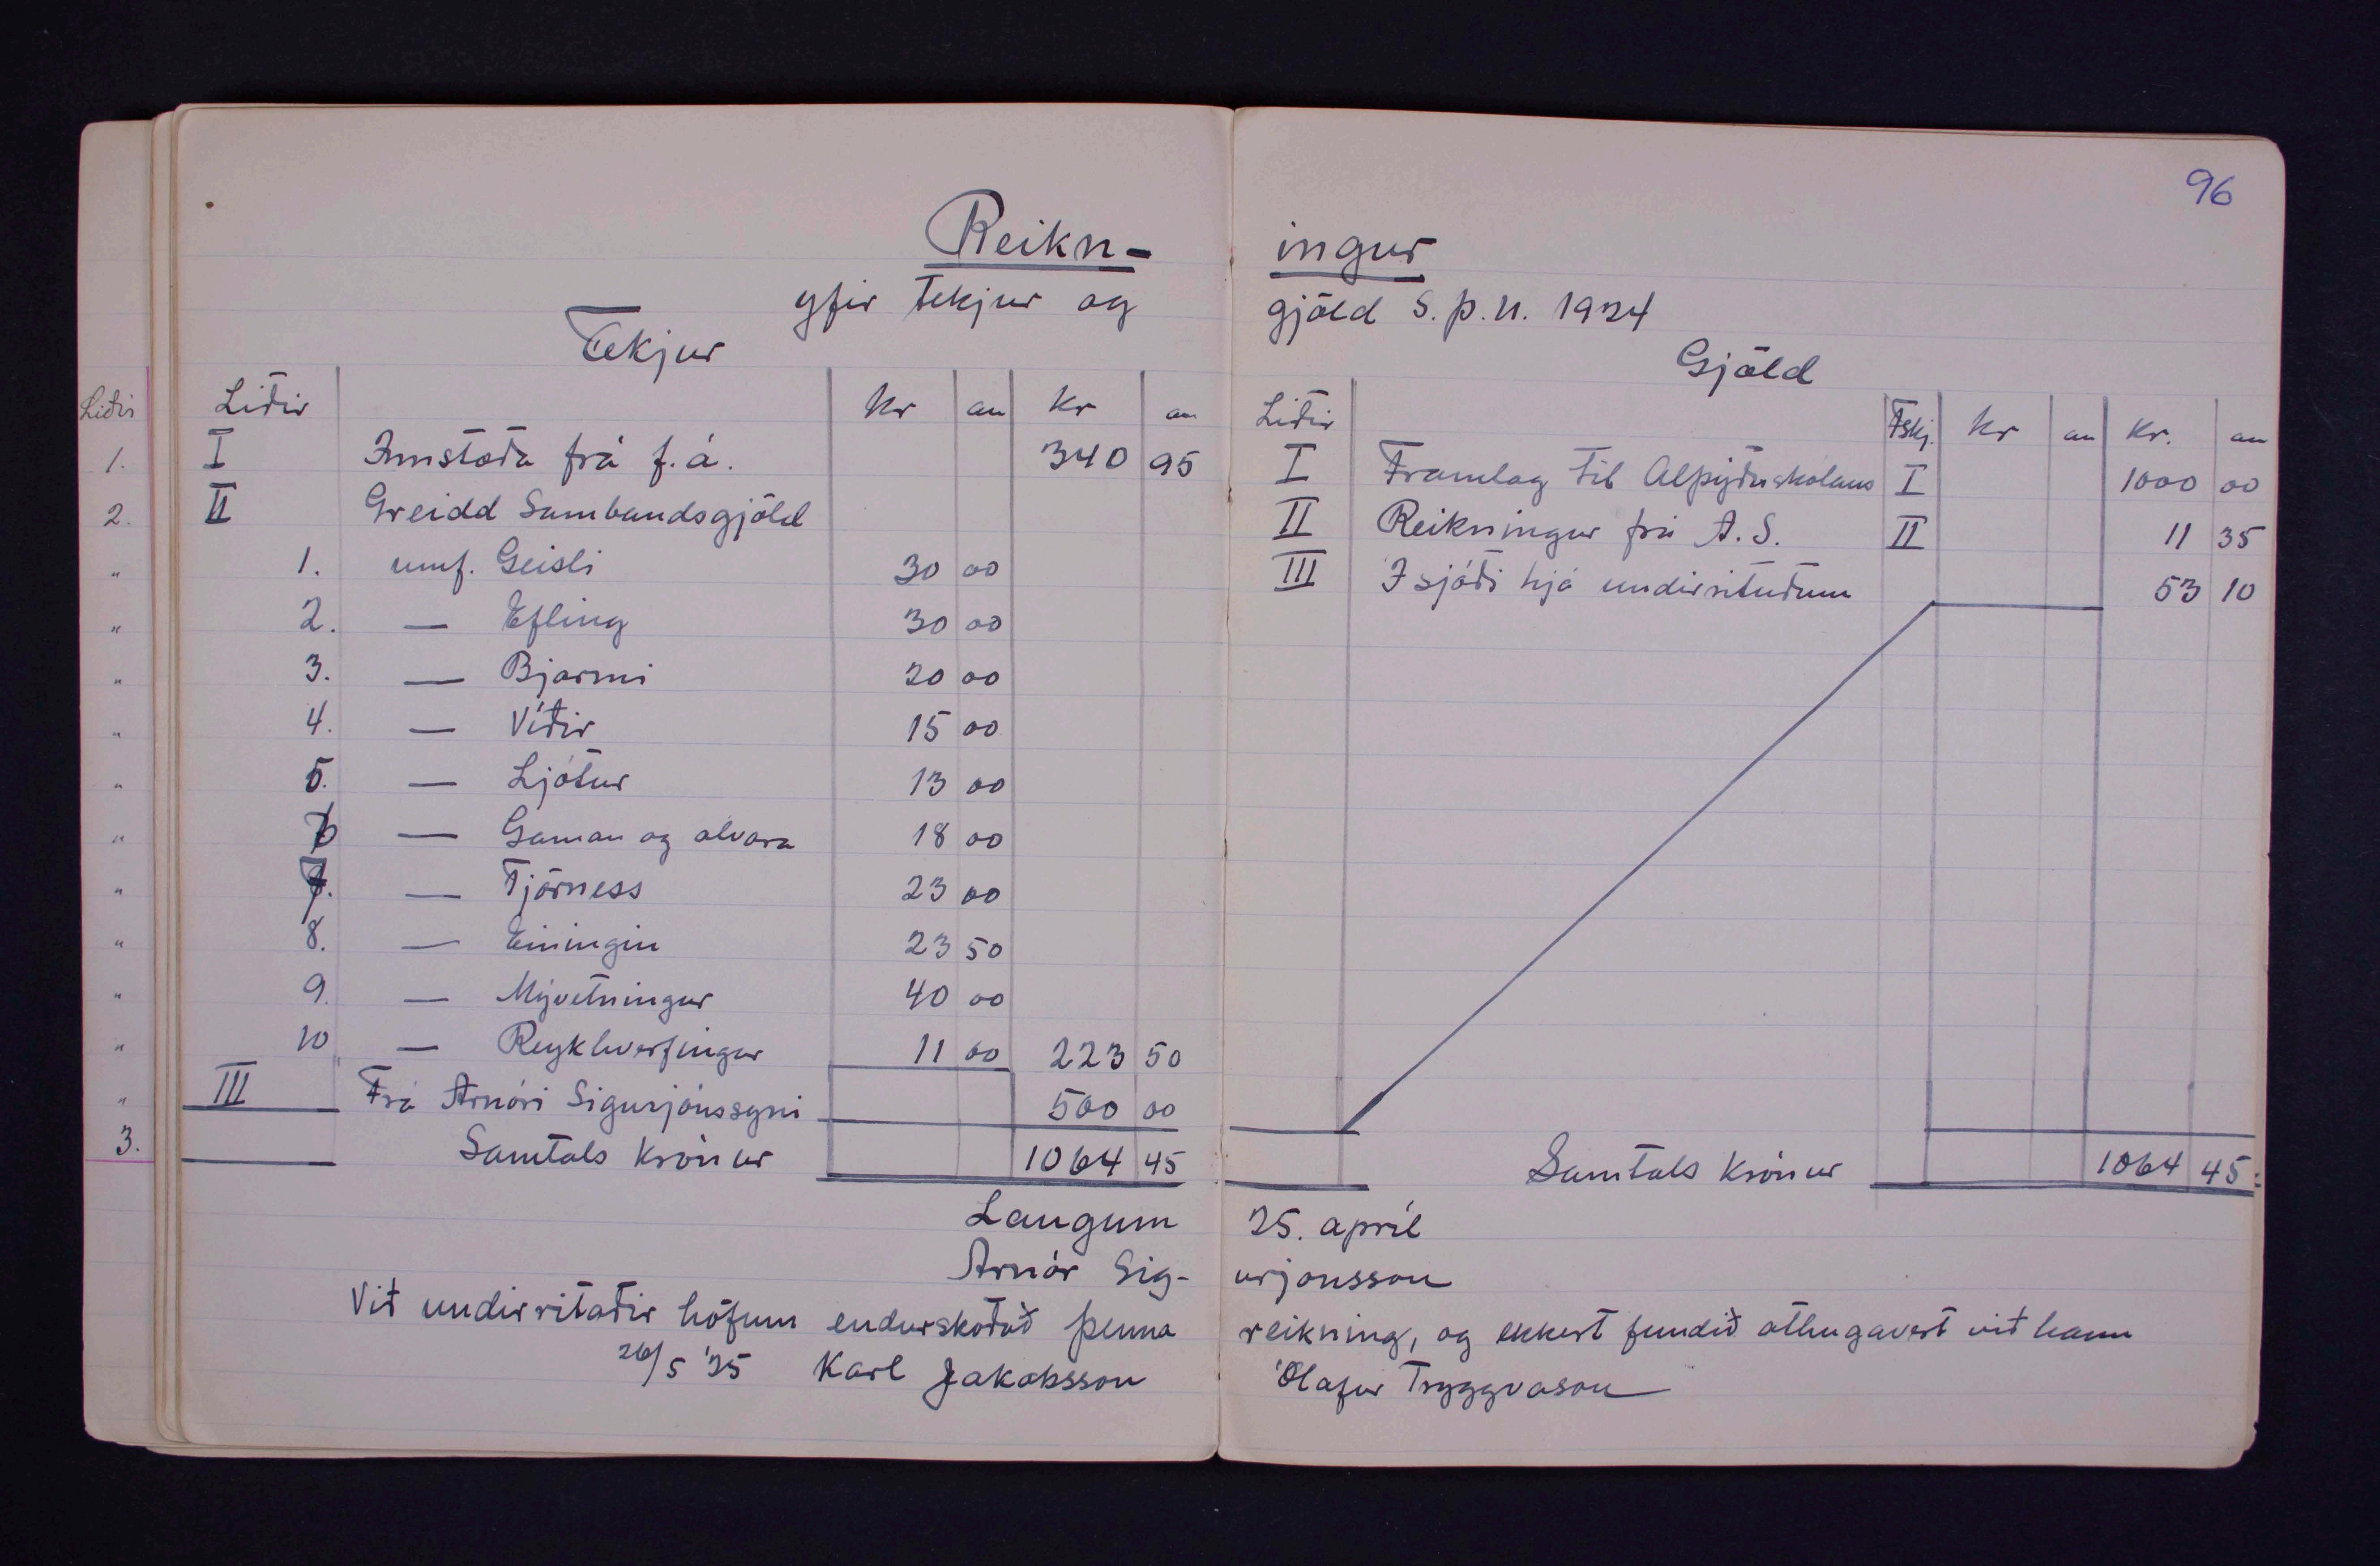 Liðir
1.
2.
"
"
"
"
"
"
"
"
"
"
"
3.
Reikn-
yfir tekjur og
Tekjur
Liðir kr au kr au
I Innstæða frá f. á. 340 95
II Greidd Sambandsgjöld
1. umf. Geisli 30 00
2. — Efling 30 00
3. — Bjarmi 20 00
4. — Víðir 15 00
5. — Ljótur 13 00
6 — Gaman og alvara 18 00
7. — Tjörness 23 00
8. — Einingin 23 50
9. — Mývetningur 40 00
10 — Reykhverfingur 11 00 223 50
III Frá Arnóri Sigurjónssyni 500 00
Samtals krónur 1064 45
Laugum
Arnór Sig-
Við undirritaðir höfum endurskoðað þenna
26/5 '35 Karl Jakobsson
96
ingur
gjöld S.Þ.U. 1934
Gjöld
Liðir Fskj. kr au kr. au
I Framlag til Alþýðuskólans I 1000 00
II Reikningur frá A. S. II 11 35
III Í sjóði hjá undirrituðum 53 10
Samtals krónur 1064 45
25. apríl
urjónsson
reikning, og ekkert fundið athugavert við hann
Ólafur Tryggvason